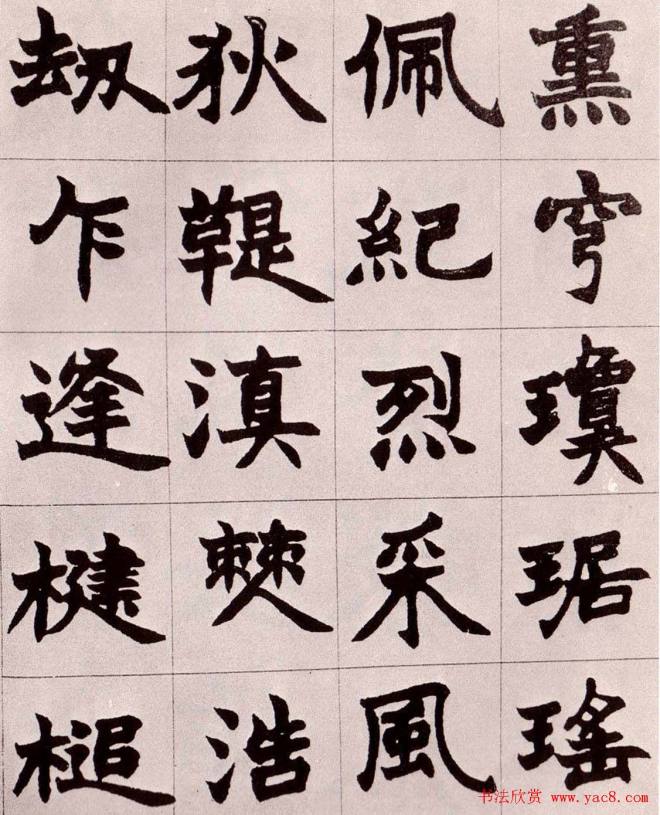 熏穹瓊琚瑤
佩紀烈采風
狄鞮滇僰浩
劫乍逢楗槌
书法欣赏 www.yac8.com